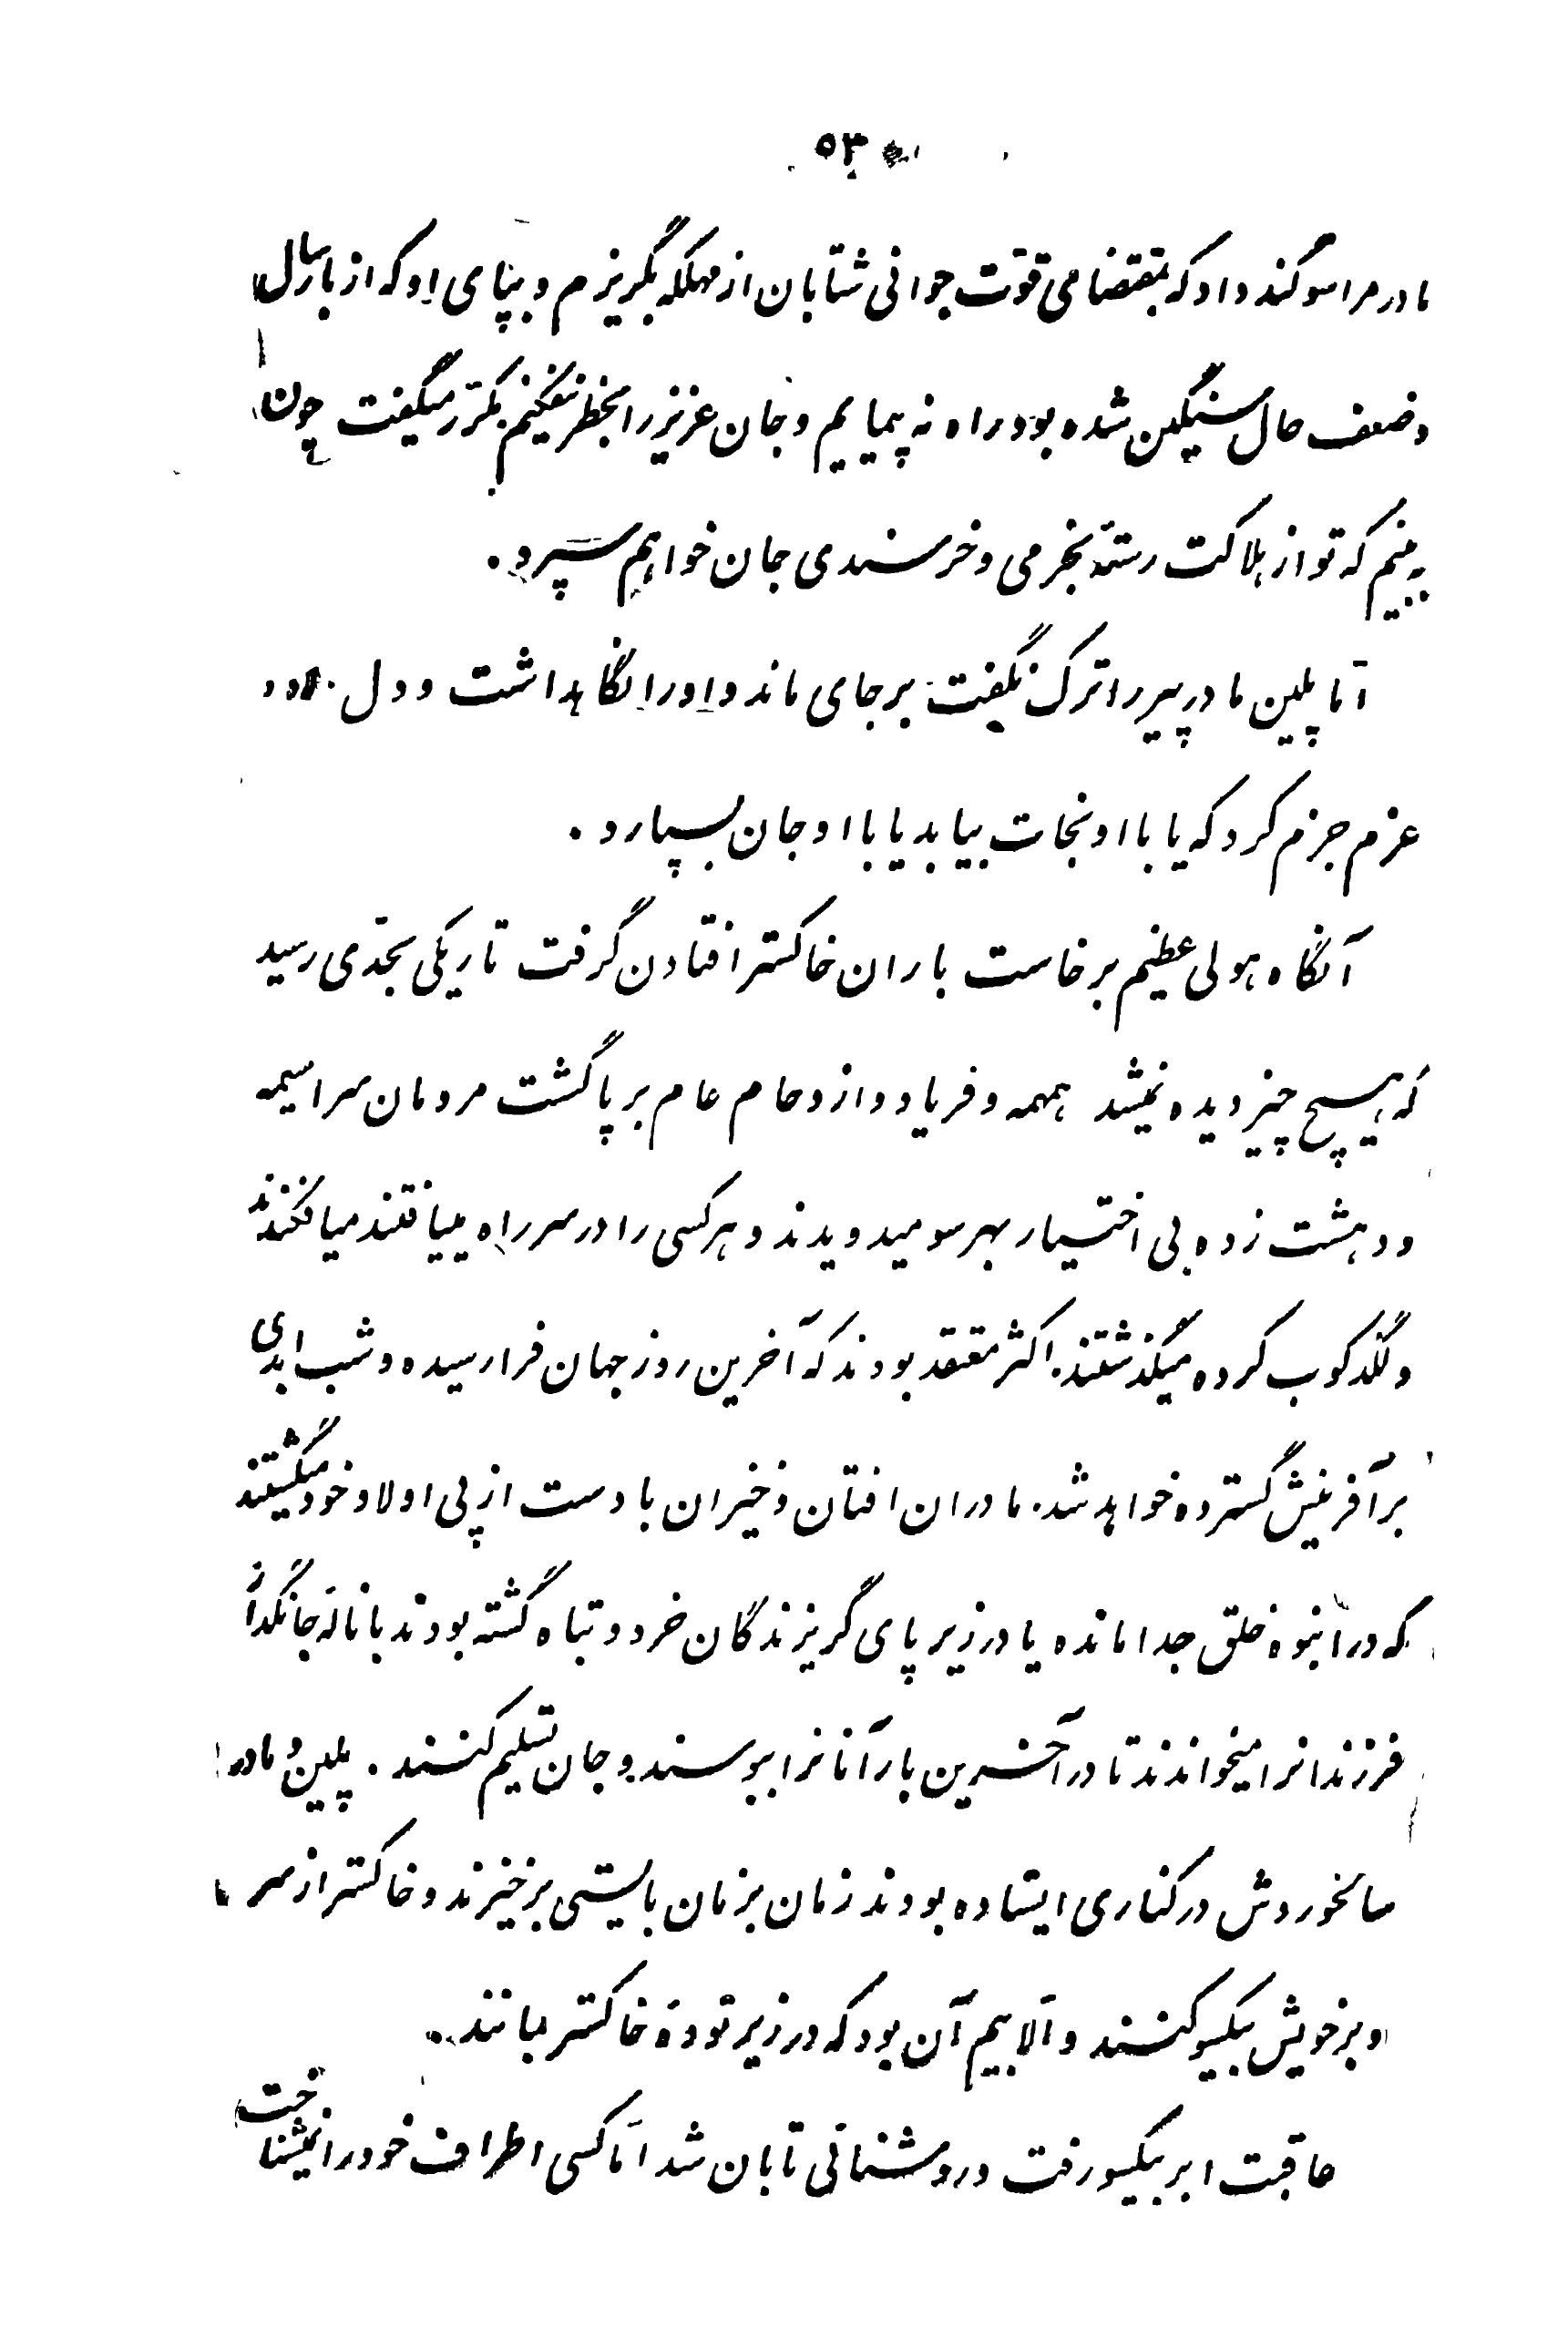 ۵۳
مادر مرا سوگند داد که بمقتضای قوّت جوانی شتابان از مهلکه بگریزم و بپای او که از بار سال
و ضعف حال سنگین شده بود راه نه پیمایم و جان عزیز را بخطر نیفکنم بمکرّر میگفت چون
به بینم که تو از هلاکت رستهٔ بخرمی و خرسندی جان خواهم سپرد.
امّا پلین مادر پیر را ترک نگفت برجای ماند و اورا نگاهداشت و دل
عزم جزم کرد که یا با او نجات بیابد یا با او جان بسپارد.
آنگاه هولی عظیم برخاست باران خاکستر افتادن گرفت تاریکی بحدّی رسید
که هیچ چیز دیده نمیشد همهمه و فریاد و ازدحام عام برپا گشت مردمان سراسیمه
و دهشت زده بی اختیار بهر سو میدویدند و هرکسی را در سر راه مییافتند میافکندند
و لگدکوب کرده میگذشتند. اکثر معتقد بودند که آخرین روز جهان فرا رسیده و شب ابدی
بر آفرینش گسترده خواهد شد. مادران افتان و خیزان با دست از پی اولاد خود میگشتند
که در انبوه خلق جدا مانده یا در زیر پای گریزندگان خرد و تباه گشته بودند با نالهٔ جانگداز
فرزندانرا میخواندند تا در آخرین بار آنانرا ببوسند و جان تسلیم کنند. پلین و مادر
سالخوردش در کناری ایستاده بودند زمان بزمان بایستی برخیزند و خاکستر از سر
و بر خویش بیکسو کنند و الّا بیم آن بود که در زیر تودهٔ خاکستر بمانند.
عاقبت ابر بیکسو رفت و روشنائی تابان شد امّا کسی اطراف خود را نمیشناخت